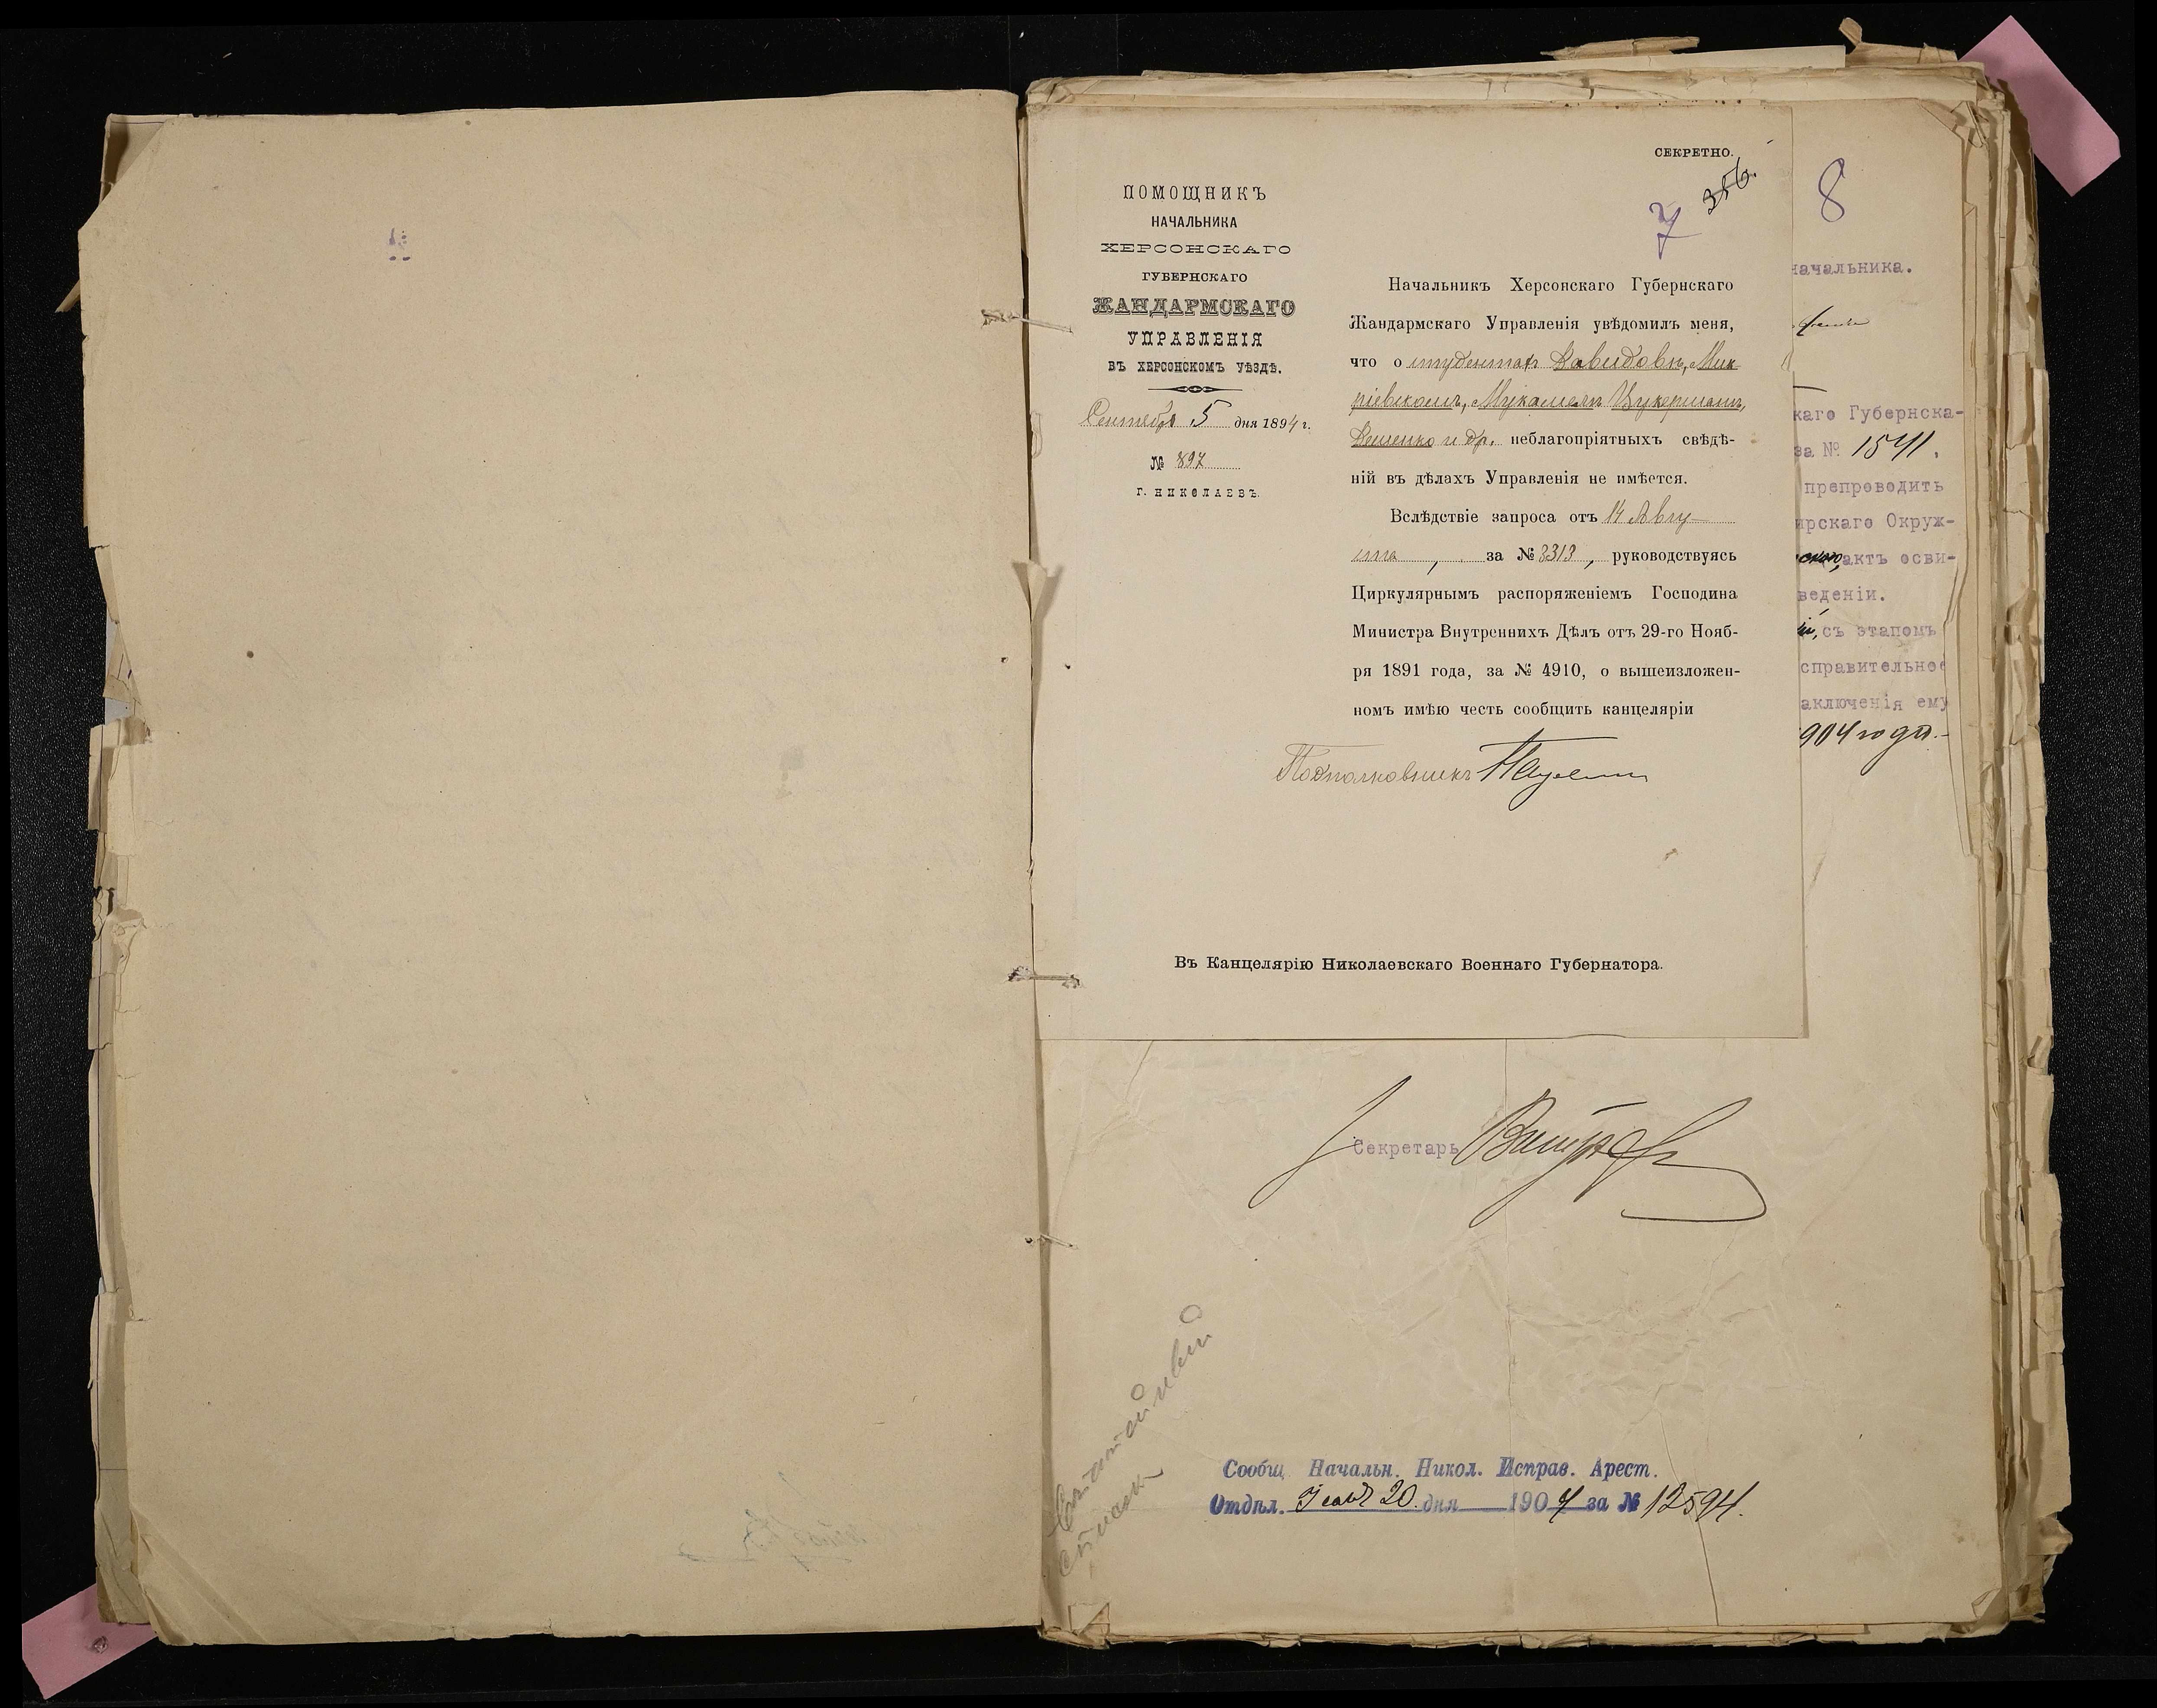 СЕКРЕТНО.
356.
7
ПОМОЩНИКЪ
НАЧАЛЬНИКА
ХЕРСОНСКАГО
ГУБЕРНСКАГО
ЖАНДАРМСКАГО
УПРАВЛЕНІЯ
ВЪ ХЕРСОНСКОМЪ УѢЗДѢ.
Сентября 5 дня 1894 г.
№ 897
Г. НИКОЛАЕВЪ.
Начальникъ Херсонскаго Губернскаго
Жандармскаго Управленія увѣдомилъ меня,
что о студентах Давидовѣ,
Цукерманѣ,
и др. неблагопріятныхъ свѣдѣ-
ній въ дѣлахъ Управленія не имѣется.
Вслѣдствіе запроса отъ 14 Авгу-
ста, за № 3313, руководствуясь
Циркулярнымъ распоряженіемъ Господина
Министра Внутреннихъ Дѣлъ отъ 29-го Нояб-
ря 1891 года, за № 4910, о вышеизложен-
номъ имѣю честь сообщить канцеляріи
Подполковникъ
Въ Канцелярію Николаевскаго Военнаго Губернатора.
8
начальника.
каго Губернска-
за № 1541.
препроводить
ирскаго Окруж-
скою, актъ осви-
веденіи.
съ этапомъ
справительное
аключенія ему
904 года.-
Секретарь
Сообщ Начальн. Никол. Исправ. Арест.
Отдѣл. 20 дня 1904 за № 12594.